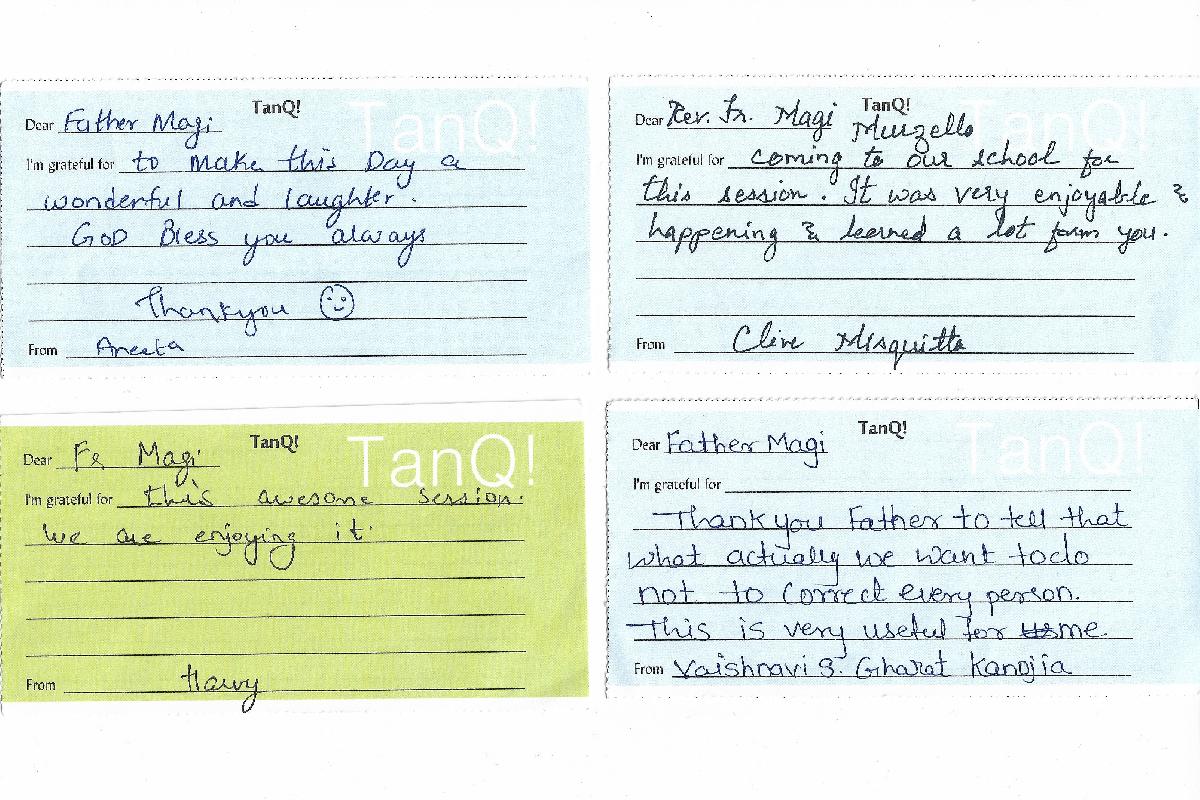 TanQ!
TanQ!
Dear Father Magi
I'm grateful for to make this Day a
wonderful and laughter.
GOD Bless you always
Thankyou
From Aneeta
TanQ!
TanQ!
Dear Rev. Fr. Magi
Murzello
I'm grateful for coming to our school for
this session. It was very enjoyable &
happening & learned a lot form you.
From Clive Misquitta
TanQ!
TanQ!
Dear Fr Magi
I'm grateful for this awesome session.
We are enjoying it.
From
TanQ!
TanQ!
Dear Father Magi
I'm grateful for
Thank you Father to tell that
what actually we want todo
not to correct every person.
This is very useful for us me.
From Vaishnavi S. Gharat Kanojia